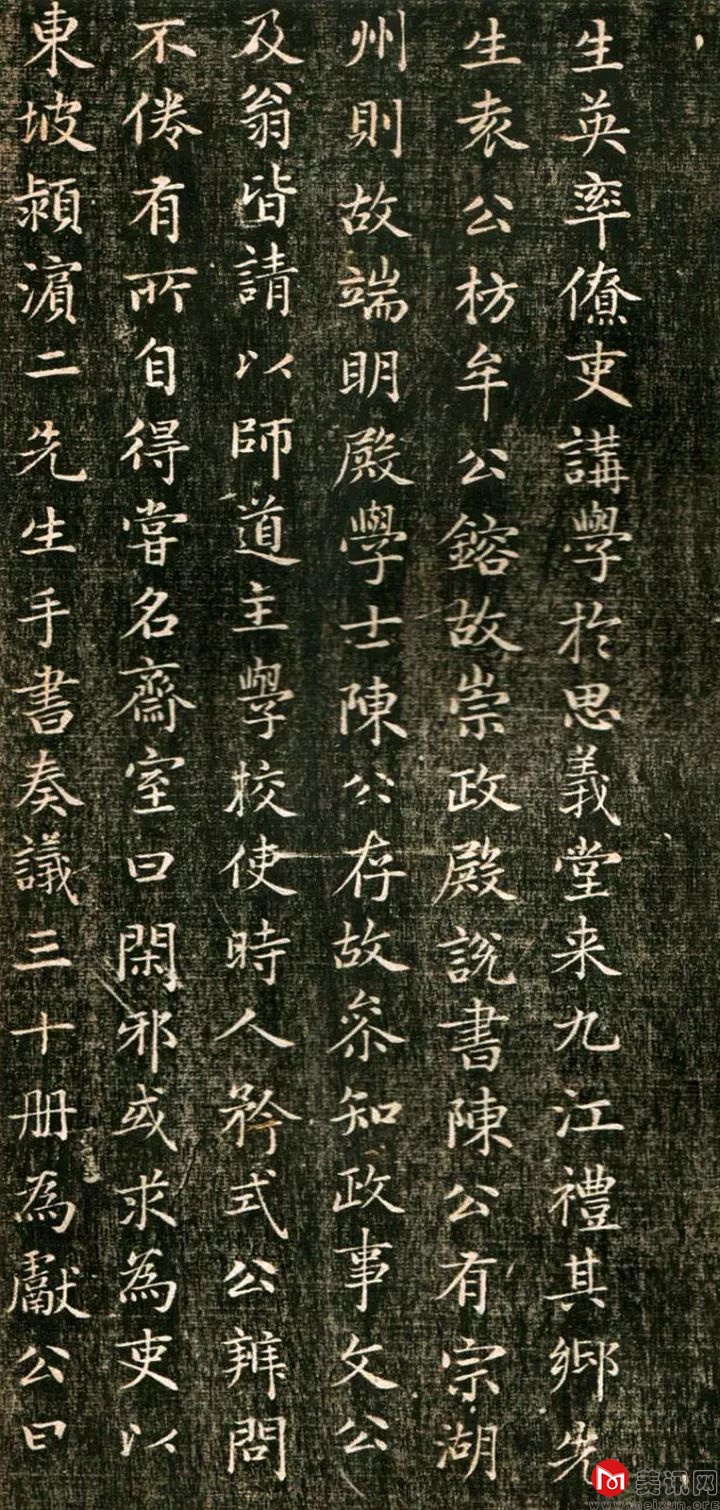 生英率僚吏講學於思義堂来九江禮其鄉先
生袁公枋牟公鎔故崇政殿說書陳公有宗湖
州則故端明殿學士陳公存故叅知政事文公
及翁皆請以師道主學校使時人矜式公辨問
不倦有所自得嘗名齋室曰閑邪或求為吏以
東坡潁濵二先生手書奏議三十册為獻公曰
美讯网
www.meixun.org